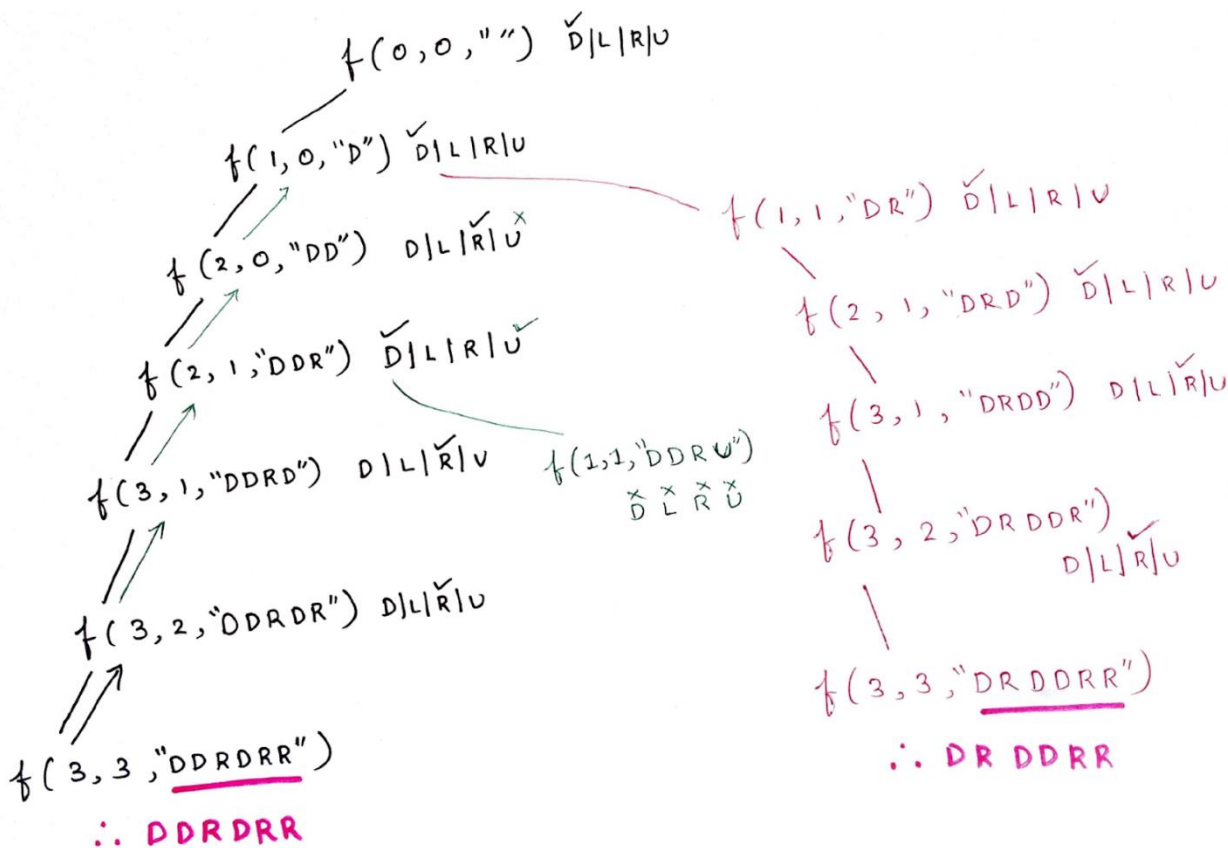 f(0,0,"") D|L|R|U
f(1,0,"D") D|L|R|U
f(2,0,"DD") D|L|R|U
f(2,1,"DDR") D|L|R|U
f(3,1,"DDRD") D|L|R|U
f(3,2,"DDRDR") D|L|R|U
f(3,3,"DDRDRR")
∴ DDRDRR
f(1,1,"DDRU")
D L R U
f(1,1,"DR") D|L|R|U
f(2,1,"DRD") D|L|R|U
f(3,1,"DRDD") D|L|R|U
f(3,2,"DRDDR")
D|L|R|U
f(3,3,"DRDDRR")
∴ DR DDRR